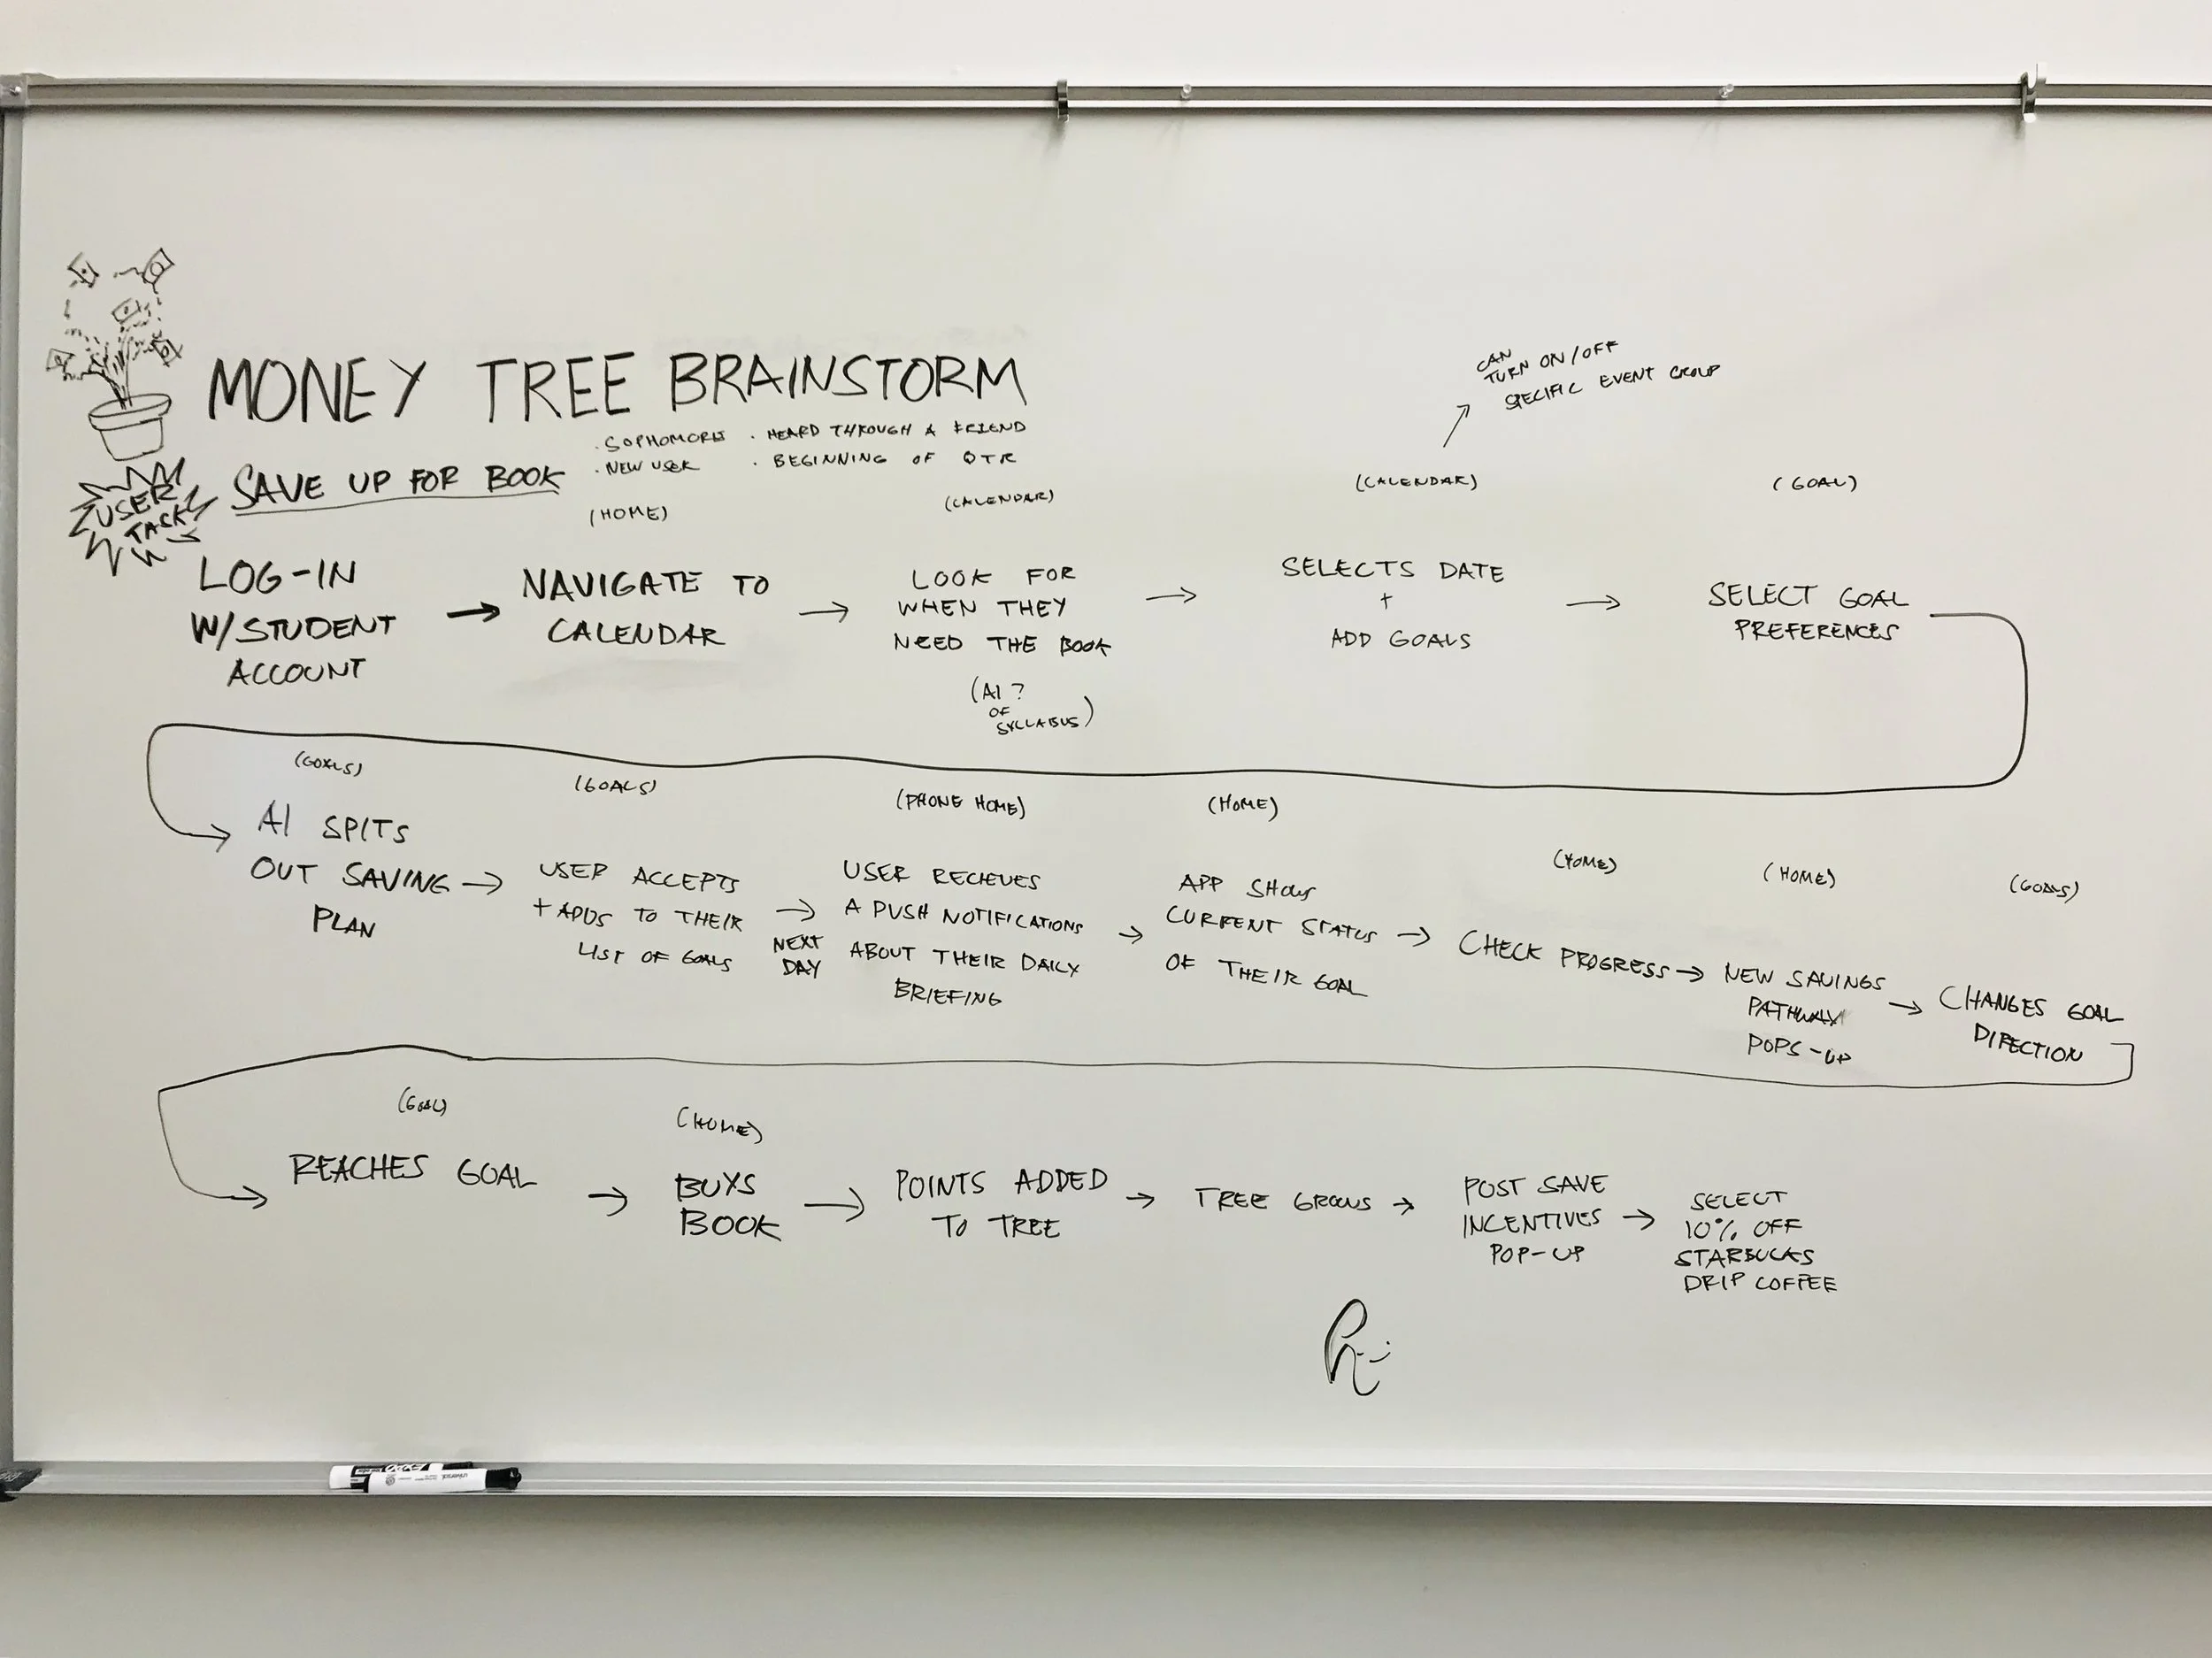 MONEY TREE BRAINSTORM
CAN
TURN ON/OFF
SPECIFIC EVENT GROUP
USER
TASK
SAVE UP FOR BOOK
. SOPHOMORE
. NEW USER
. HEARD THROUGH A FRIEND
. BEGINNING OF QTR
(HOME)
(CALENDAR)
(CALENDAR)
(GOAL)
LOG-IN
W/STUDENT
ACCOUNT
→ NAVIGATE TO
CALENDAR
→ LOOK FOR
WHEN THEY
NEED THE BOOK
(AI?
OF
SYLLABUS)
→ SELECTS DATE
+
ADD GOALS
→ SELECT GOAL
PREFERENCES
(GOALS)
AI SPITS
OUT SAVING
PLAN
→
(GOALS)
USER ACCEPTS
+ ADDS TO THEIR
LIST OF GOALS
→
NEXT
DAY
(PHONE HOME)
USER RECIEVES
A PUSH NOTIFICATIONS
ABOUT THEIR DAILY
BRIEFING
→
(HOME)
APP SHOWS
CURRENT STATUS
OF THEIR GOAL
→
(HOME)
CHECK PROGRESS →
(HOME)
NEW SAVINGS
PATHWAY
POPS-UP
→
(GOALS)
CHANGES GOAL
DIRECTION
(GOAL)
REACHES GOAL
→
(HOME)
BUYS
BOOK
→ POINTS ADDED
TO TREE
→ TREE GROWS →
POST SAVE
INCENTIVES
POP-UP
→ SELECT
10% OFF
STARBUCKS
DRIP COFFEE
EXPO